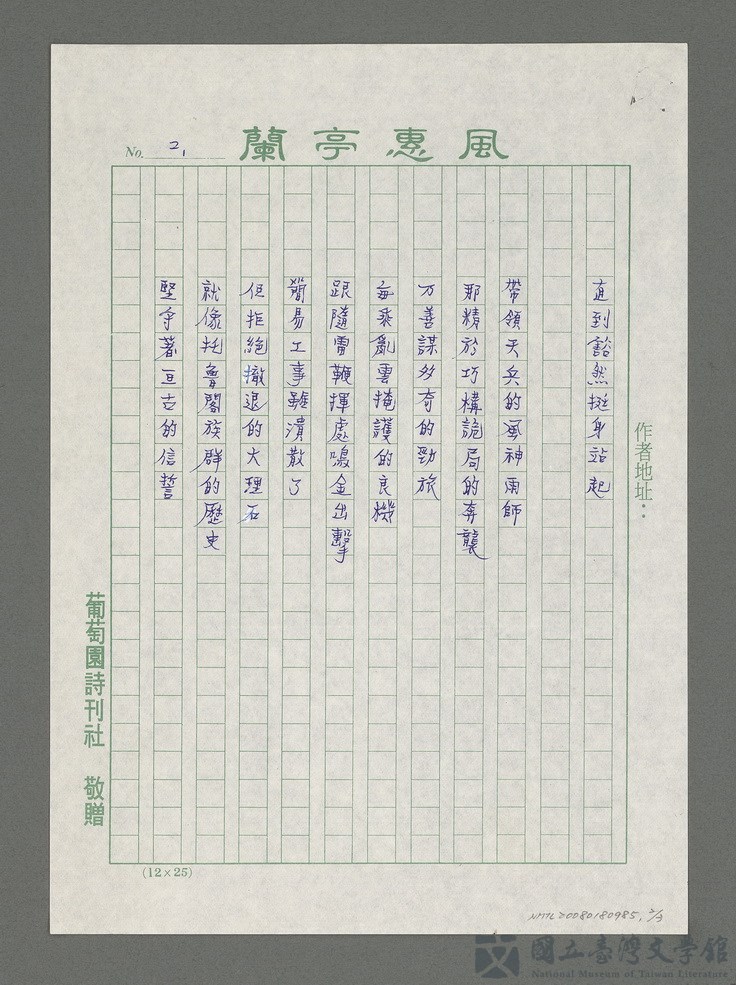 蘭亭惠風
No. 2,
作者地址：
直到豁然挺身站起
帶領天兵的風神雨師
那精於巧構詭局的奔襲
万善謀多奇的勁旅
每乘亂雲掩護的良機
跟隨雷鞭揮處鳴金出擊
簡易工事雖潰散了
但拒絕撤退的大理石
就像托魯閣族群的歷史
堅守著亘古的信誓
葡萄園詩刊社 敬贈
(12×25)
NMTL20080180985, 2/3
國立臺灣文學館
National Museum of Taiwan Literature